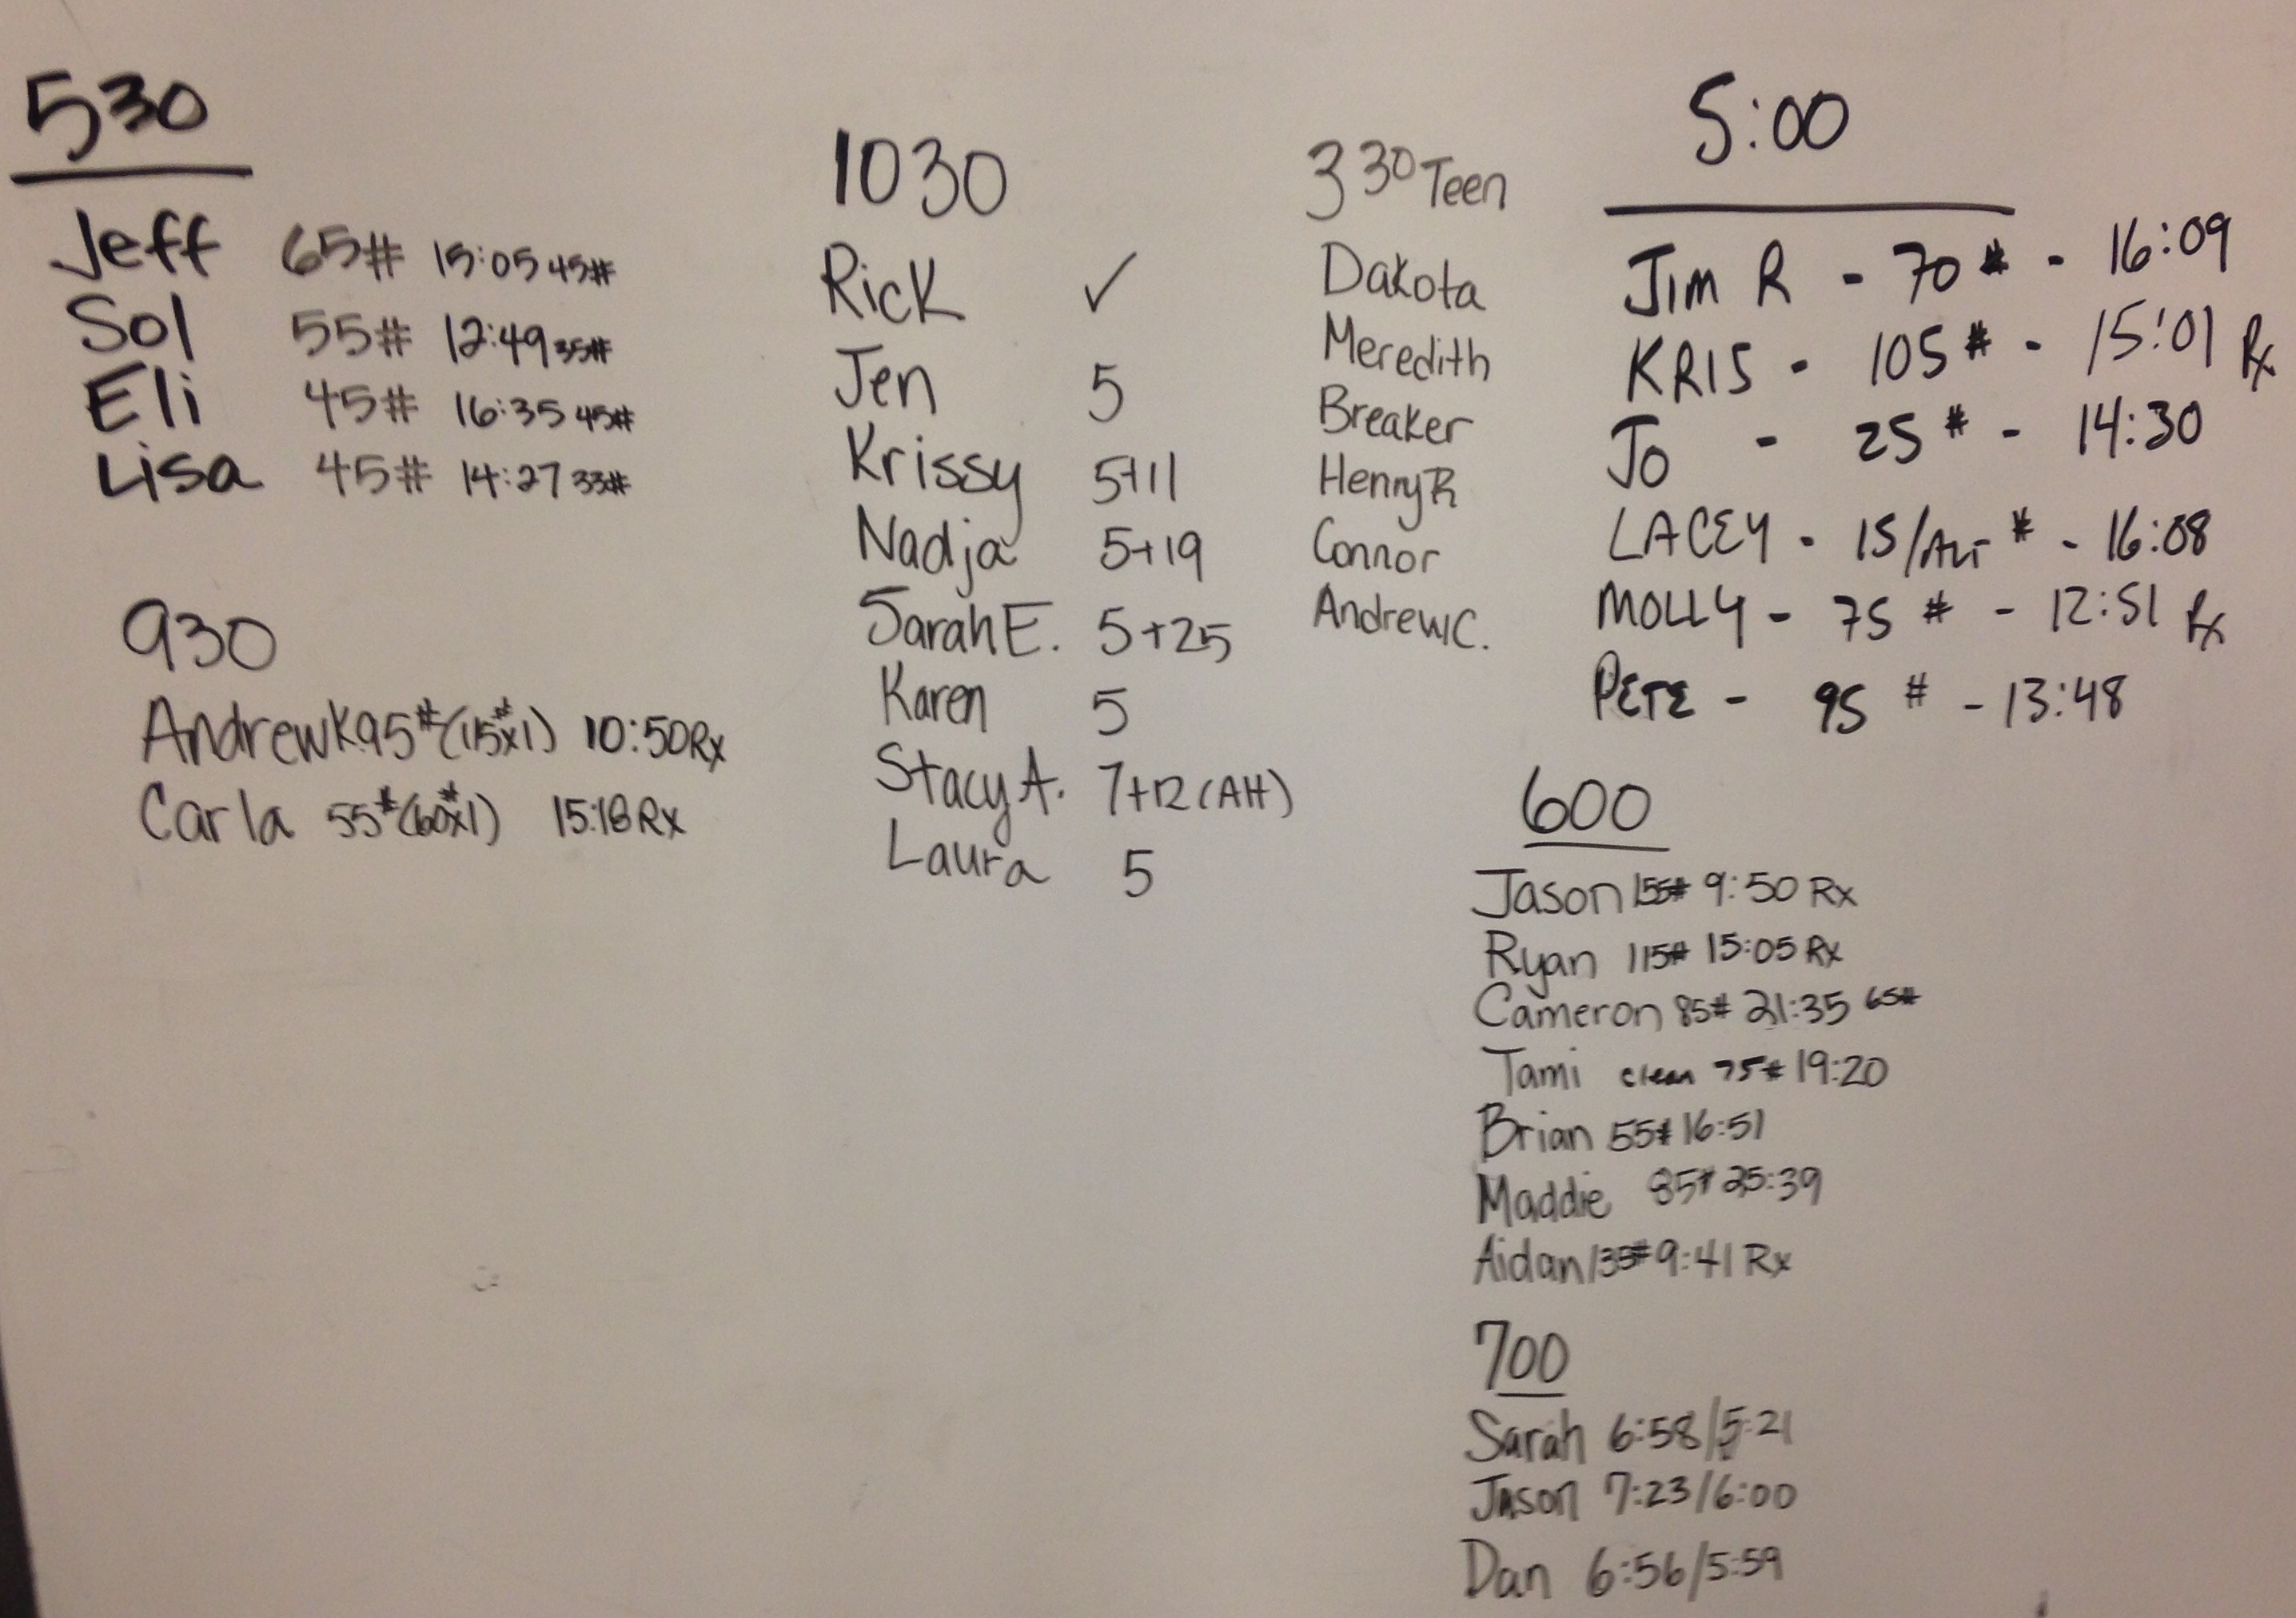 530
Jeff 65# 15:05 45#
Sol 55# 12:49 35#
Eli 45# 16:35 45#
Lisa 45# 14:27 33#
930
AndrewK 95# (115#x1) 10:50 Rx
Carla 55# (60#x1) 15:18 Rx
1030
Rick ✓
Jen 5
Krissy 5+11
Nadja 5+19
Sarah E. 5+25
Karen 5
Stacy A. 7+12 (AH)
Laura 5
330 Teen
Dakota
Meredith
Breaker
Henry R
Connor
Andrew C.
5:00
JIM R - 70# - 16:09
KRIS - 105# - 15:01 Rx
JO - 25# - 14:30
LACEY - 15/ALT # - 16:08
MOLLY - 75# - 12:51 Rx
PETE - 95# - 13:48
600
Jason 155# 9:50 Rx
Ryan 115# 15:05 Rx
Cameron 85# 21:35 65#
Tami clean 75# 19:20
Brian 55# 16:51
Maddie 85# 25:39
Aidan 135# 9:41 Rx
700
Sarah 6:58/5:21
Jason 7:23/6:00
Dan 6:56/5:59